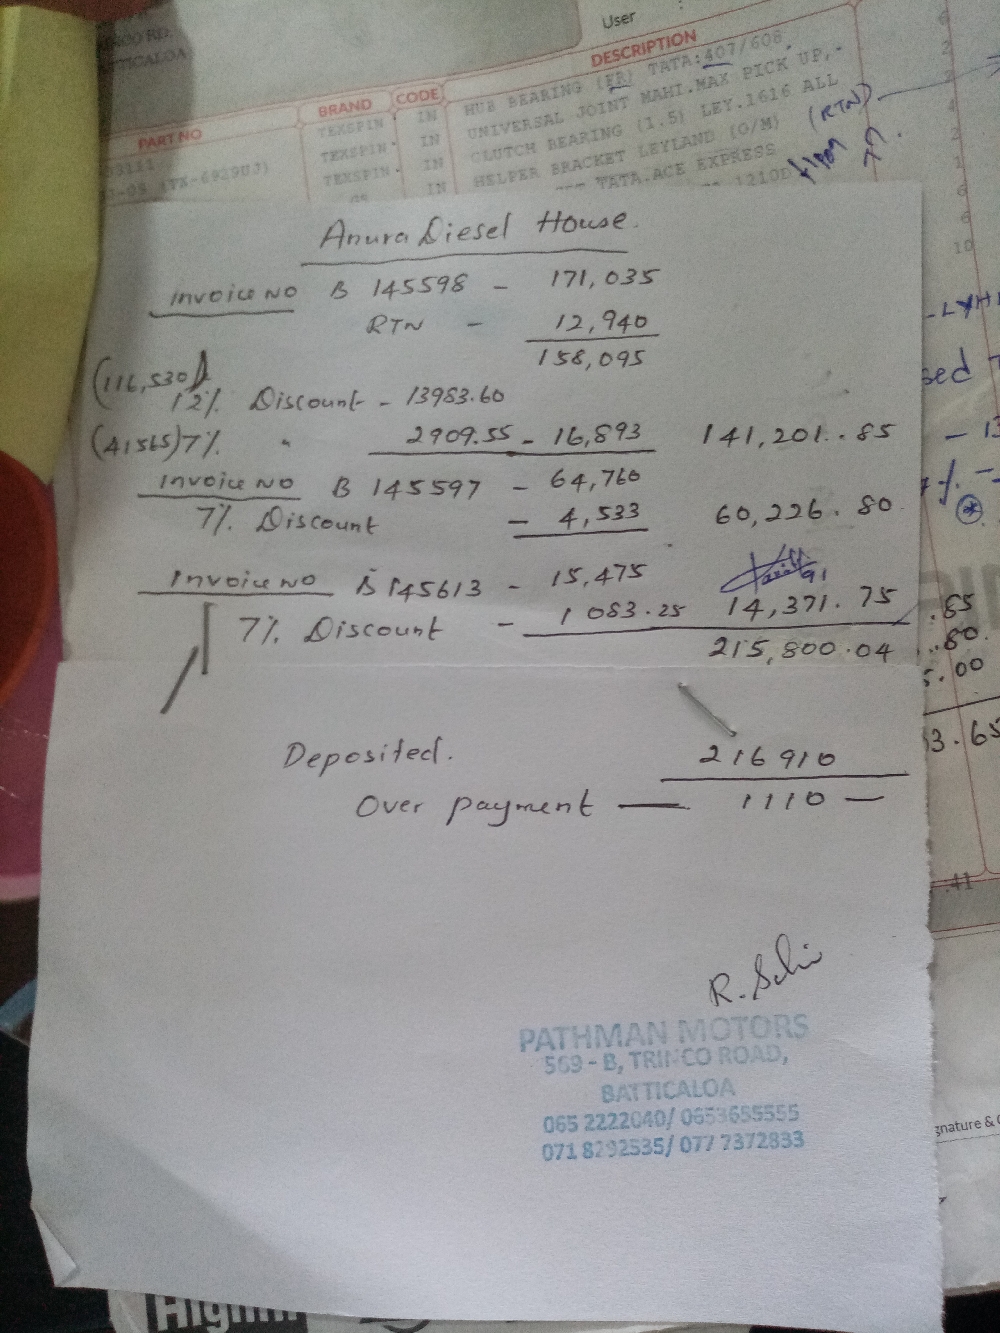 User
RD.
BATTICALOA
DESCRIPTION
PART NO BRAND CODE
TEXSPIN IN HUB BEARING (RR) TATA:407/608,
TEXSPIN IN UNIVERSAL JOINT MAHI.MAX PICK UP,
(TX-6929UJ) TEXSPIN IN CLUTCH BEARING (1.5) LEY.1616 ALL
IN HELPER BRACKET LEYLAND (O/M)
TATA.ACE EXPRESS
1210D
(RTN)
6
2
4
2
1
6
6
10
Anura Diesel House.
Invoice NO B 145598 - 171,035
RTN - 12,940
158,095
(116,530)
12% Discount - 13983.60
(41565) 7% " 2909.55 - 16,893 141,201..85
Invoice NO B 145597 - 64,760
7% Discount - 4,533 60,226.80
Invoice NO B 145613 - 15,475
91
7% Discount - 1083.25 14,371.75
215,800.04
Deposited. 216910
Over payment — 1110 —
.85
..80
.00
3.65
.41
R.
PATHMAN MOTORS
569 - B, TRINCO ROAD,
BATTICALOA
065 2222040/ 0653655555
071 8292535/ 077 7372833